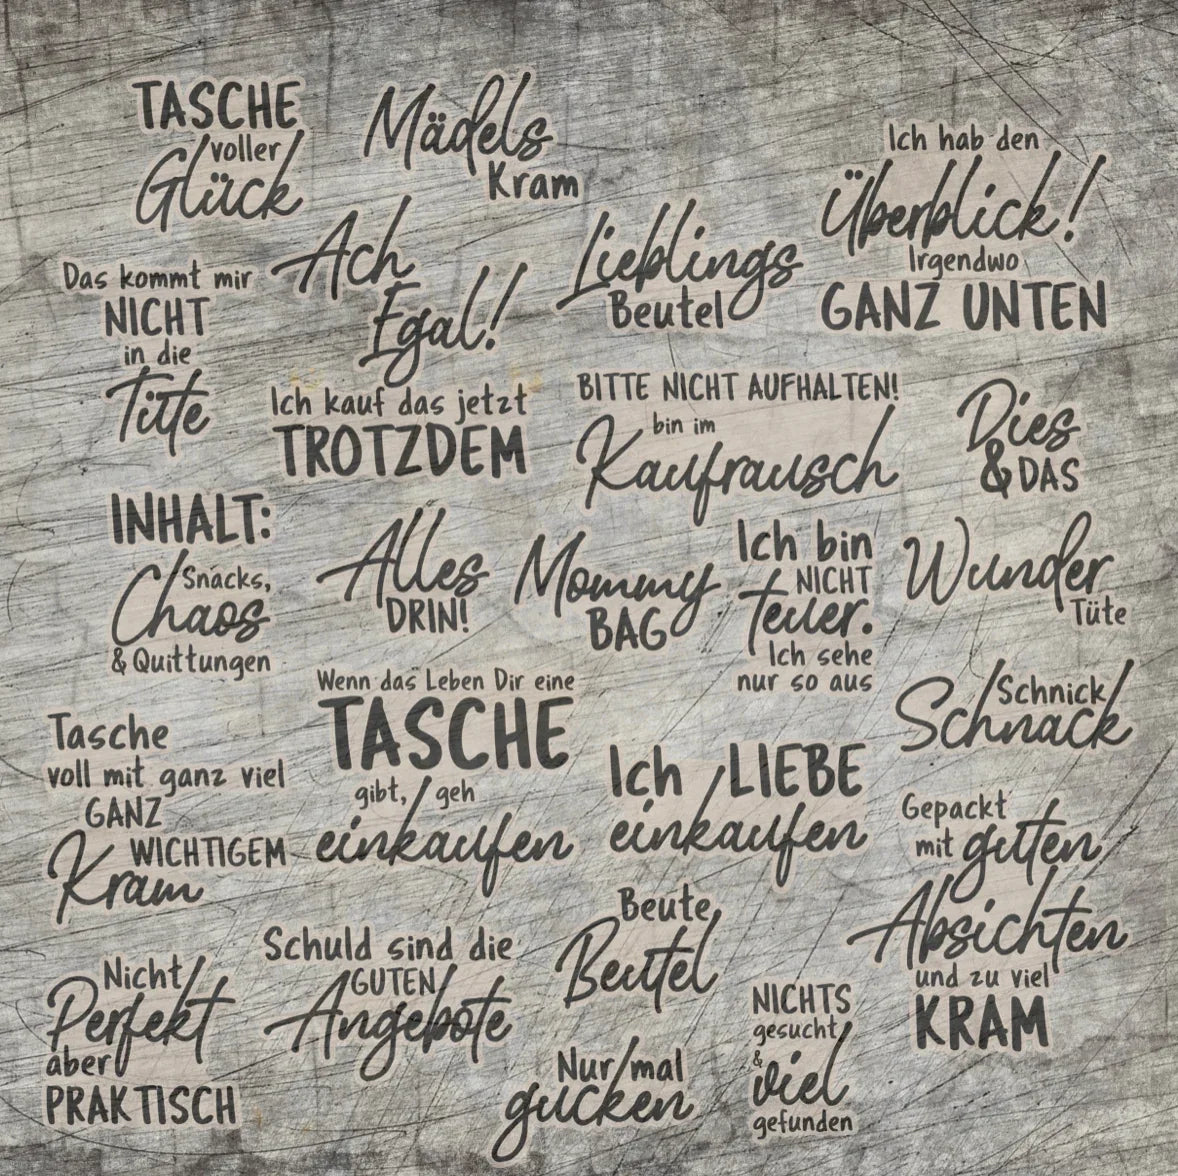 TASCHE
voller
Glück
Mädels
Kram
Ich hab den
Überblick!
Irgendwo
GANZ UNTEN
Ach
Egal!
Lieblings
Beutel
Das kommt mir
NICHT
in die
Tüte
Ich kauf das jetzt
TROTZDEM
BITTE NICHT AUFHALTEN!
bin im
Kaufrausch
Dies
& DAS
INHALT:
Snacks,
Chaos
& Quittungen
Alles
DRIN!
Mommy
BAG
Ich bin
NICHT
teuer.
Ich sehe
nur so aus
Wunder
Tüte
Wenn das Leben Dir eine
TASCHE
gibt, geh
einkaufen
Schnick
Schnack
Tasche
voll mit ganz viel
GANZ
WICHTIGEM
Kram
Ich LIEBE
einkaufen
Gepackt
mit guten
Absichten
und zu viel
KRAM
Beute
Beutel
Schuld sind die
GUTEN
Angebote
Nicht
Perfekt
aber
PRAKTISCH
NICHTS
gesucht
&
viel
gefunden
Nur mal
gucken